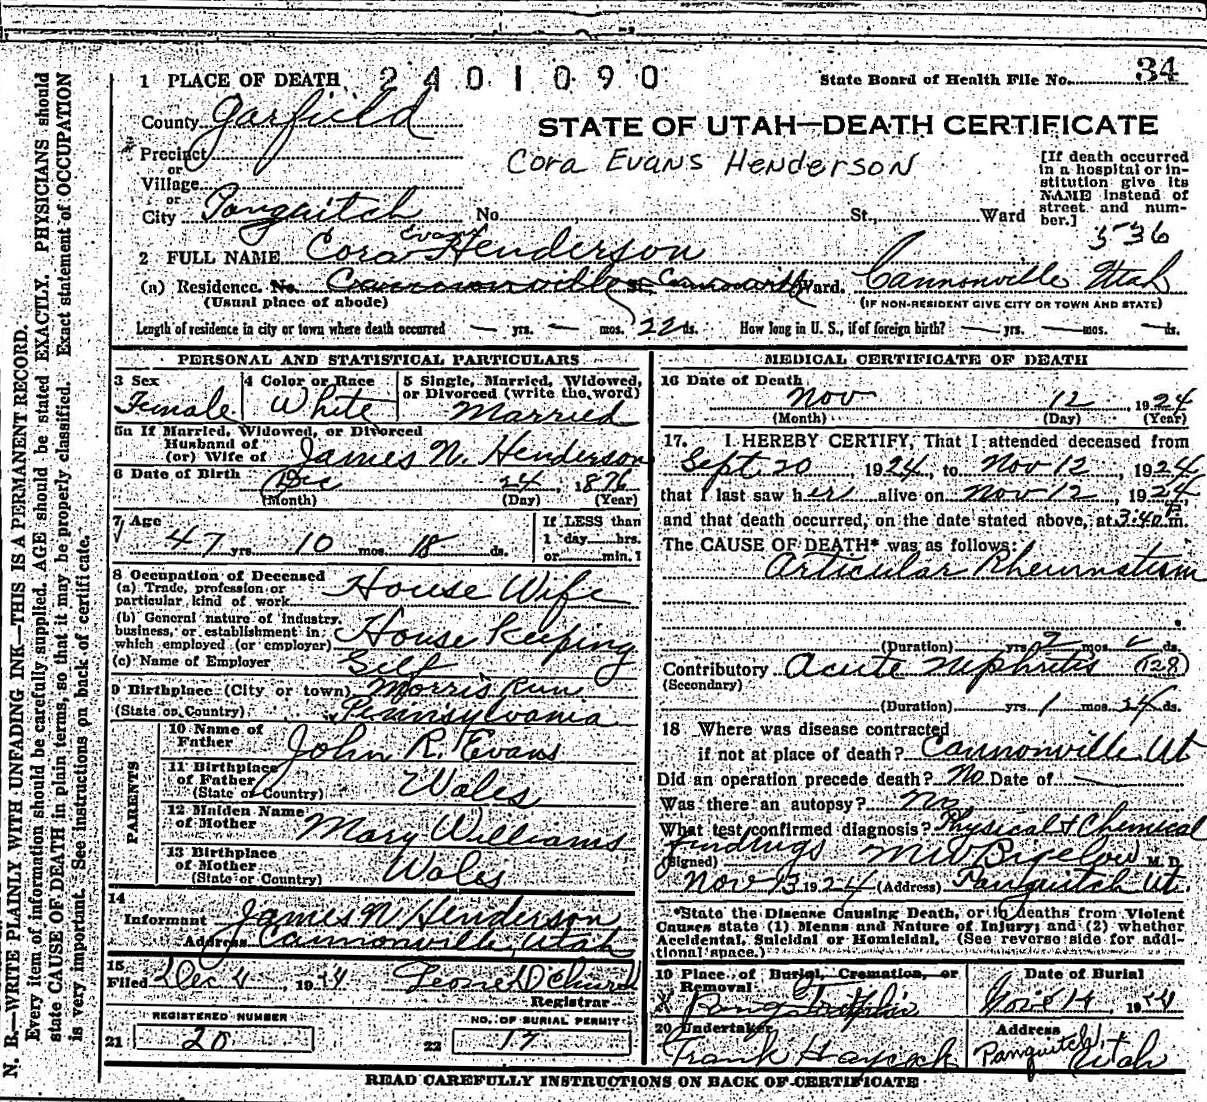 1 PLACE OF DEATH 2401090 State Board of Health File No. 34
County Garfield
STATE OF UTAH—DEATH CERTIFICATE
Precinct
Cora Evans Henderson
or
Village
or
City Panguitch No. St., Ward
[If death occurred
in a hospital or in-
stitution give its
NAME instead of
street and num-
ber.]
536
2 FULL NAME Cora Evans Henderson
(a) Residence. No. Cannonville St. Ward. Cannonville Utah
(Usual place of abode) (IF NON-RESIDENT GIVE CITY OR TOWN AND STATE)
Length of residence in city or town where death occurred — yrs. — mos. 22 ds. How long in U. S., if of foreign birth? — yrs. — mos. — ds.
PERSONAL AND STATISTICAL PARTICULARS
3 Sex
Female
4 Color or Race
White
5 Single, Married, Widowed,
or Divorced (write the word)
Married
5a If Married, Widowed, or Divorced
Husband of
(or) Wife of James N. Henderson
6 Date of Birth Dec 24, 1876
(Month) (Day) (Year)
7 Age
47 yrs. 10 mos. 18 ds.
If LESS than
1 day hrs.
or min.
8 Occupation of Deceased
(a) Trade, profession or
particular kind of work House Wife
(b) General nature of industry,
business, or establishment in
which employed (or employer) House Keeping
(c) Name of Employer Self
9 Birthplace (City or town) Morris Run
(State or Country) Pennsylvania
PARENTS
10 Name of
Father John R. Evans
11 Birthplace
of Father
(State or Country) Wales
12 Maiden Name
of Mother Mary Williams
13 Birthplace
of Mother
(State or Country) Wales
14
Informant James N. Henderson
Address Cannonville, Utah
15
Filed Dec 4, 1924 D Church
Registrar
REGISTERED NUMBER
21 20
NO. OF BURIAL PERMIT
22 17
MEDICAL CERTIFICATE OF DEATH
16 Date of Death
Nov 12, 1924
(Month) (Day) (Year)
17. I HEREBY CERTIFY, That I attended deceased from
Sept 20, 1924, to Nov 12, 1924
that I last saw her alive on Nov 12, 1924
and that death occurred, on the date stated above, at 3:40 P.m.
The CAUSE OF DEATH* was as follows:
Articular Rheumatism
(Duration) yrs. 2 mos. ds.
Contributory Acute Nephritis (128)
(Secondary)
(Duration) yrs. 1 mos. 24 ds.
18 Where was disease contracted
if not at place of death? Cannonville Ut
Did an operation precede death? No Date of —
Was there an autopsy? No
What test confirmed diagnosis? Physical & Chemical
findings
(Signed) M W Bigelow M. D.
Nov 13 1924 (Address) Panguitch Ut.
*State the Disease Causing Death, or in deaths from Violent
Causes state (1) Means and Nature of Injury; and (2) whether
Accidental, Suicidal or Homicidal. (See reverse side for addi-
tional space.)
19 Place of Burial, Cremation, or
Removal
Date of Burial
Nov 14 1924
20 Undertaker
Frank Haycock
Address
Panguitch, Utah
READ CAREFULLY INSTRUCTIONS ON BACK OF CERTIFICATE
N. B.—WRITE PLAINLY WITH UNFADING INK—THIS IS A PERMANENT RECORD.
Every item of information should be carefully supplied. AGE should be stated EXACTLY. PHYSICIANS should
state CAUSE OF DEATH in plain terms, so that it may be properly classified. Exact statement of OCCUPATION
is very important. See instructions on back of certificate.